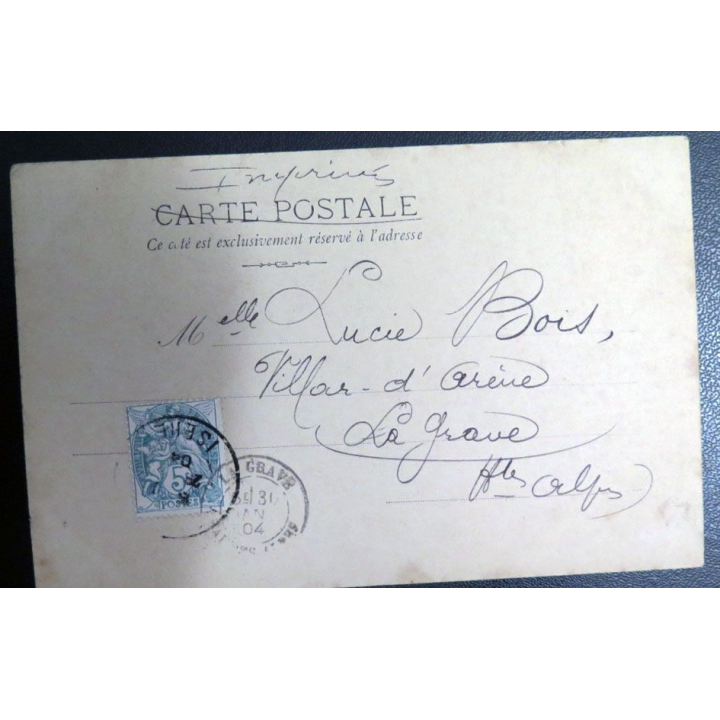 Imprimés
CARTE POSTALE
Ce côté est exclusivement réservé à l'adresse
Melle Lucie Bois,
Villar-d'arène
La Grave
Htes Alpes
ISERE
04
5
POSTES
GRAVE
31
JAN
04